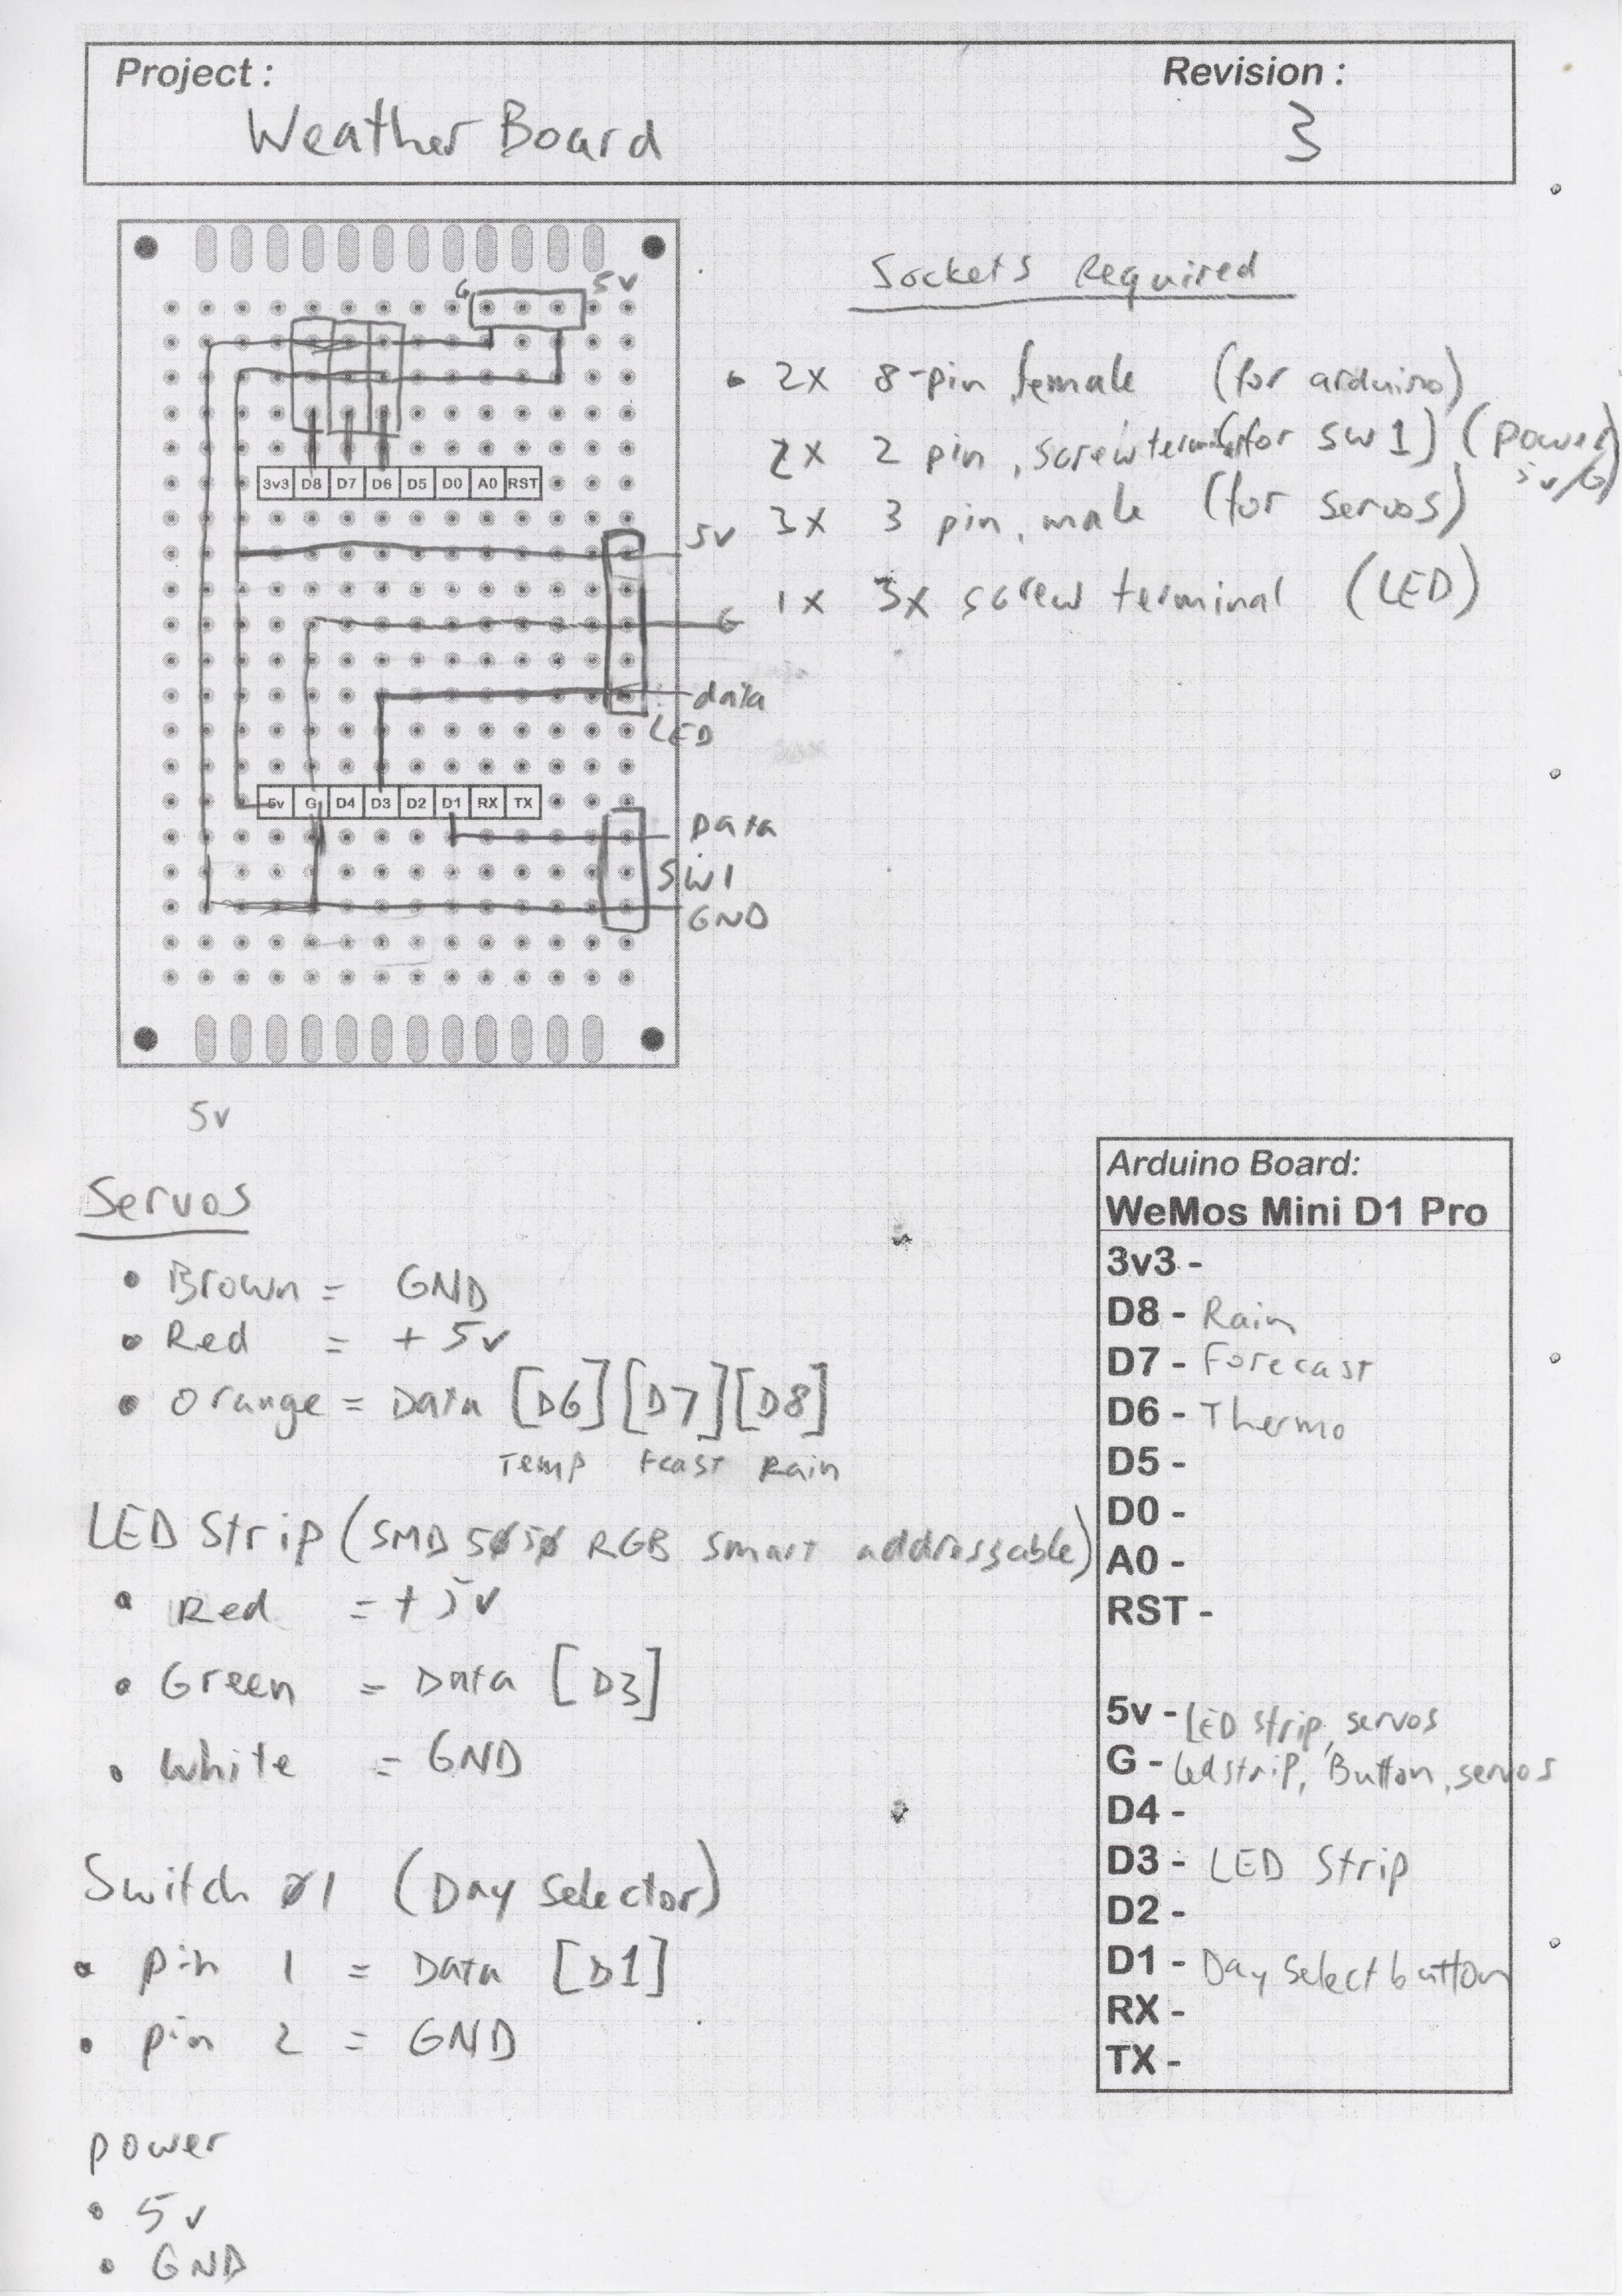 Project :
Revision :
Weather Board
3
G
5v
3v3 D8 D7 D6 D5 D0 A0 RST
5v
G
data
LED
5v G D4 D3 D2 D1 RX TX
Data
SW1
GND
5v
Sockets Required
• 2x 8-pin female (for arduino)
2x 2 pin, screw terminal (for SW1) (power 5v/G)
3x 3 pin, male (for servos)
1x 3x screw terminal (LED)
Servos
• Brown = GND
• Red = +5v
• Orange = Data [D6] [D7] [D8]
Temp Fcast Rain
LED Strip (SMD 5050 RGB smart addressable)
• Red = +5v
• Green = Data [D3]
• White = GND
Switch 01 (Day Selector)
• pin 1 = Data [D1]
• pin 2 = GND
power
• 5v
• GND
Arduino Board:
WeMos Mini D1 Pro
3v3 -
D8 - Rain
D7 - Forecast
D6 - Thermo
D5 -
D0 -
A0 -
RST -
5v - LED strip, servos
G - Led strip, Button, servos
D4 -
D3 - LED Strip
D2 -
D1 - Day Select button
RX -
TX -